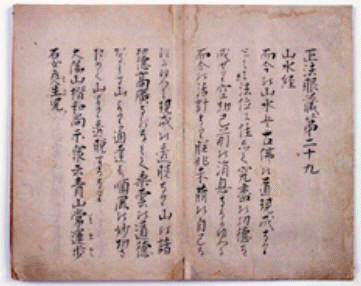 正法眼藏第二十九
山水經
而今の山水は古佛の道現成なり
ともに法位に住して究盡の功徳を
成せり空劫已前の消息なるかゆゑに
而今の活計なり朕兆未萌の自己な
るかゆゑに現成の透脱なり山の諸
功徳高廣なるをもて乗雲の道徳
かならす山より通達す順風の妙功さ
ためて山より透脱するなり
大陽山楷和尚示衆云青山常運歩
石女夜生兒